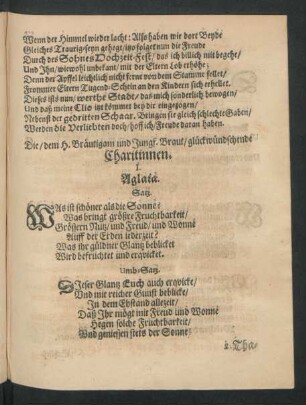 Wenn der Himmel wieder lacht: Also haben wir dort Beyde
Gleiches Traurig seyn gehegt, itzo folget nun die Freude
Durch des Sohnes Hochzeit-Fest, das ich billich mit begeht,
Und Ihn, wiewohl unbekant, mit der Eltern Lob erhöhe:
Denn der Apffel leichtlich nicht ferne von dem Stamme fellet,
Frommer Eltern Tugend-Schein an den Kindern sich erhellet.
Dieses ists nun, werthe Stadt, das mich sonderlich bewogen,
Und daß meine Clio itzt kömmet bey dir eingezogen,
Nebenst der gedritten Schaar. Bringen sie gleich schlechte Gaben,
Werden die Verliebten doch, hoff ich, Freude daran haben.
Die, dem H. Bräutigam und Jungf. Braut, glückwündschende
Charitinnen.
I.
Aglaia.
Satz.
WAs ist schöner als die Sonne?
Was bringt gröstre Fruchtbarkeit,
Gröstern Nutz, und Freud, und Wonne
Auff der Erden iederzeit?
Was ihr güldner Glantz beblicket
Wird befruchtet und erqvicket.
Umb-Satz.
DIeser Glantz Euch auch erqvicke,
Und mit reicher Gunst beblicke,
In dem Ehstand allezeit,
Daß Ihr mögt mit Freud und Wonne
Hegen solche Fruchtbarkeit,
Und geniessen stets der Sonne
2. Tha-